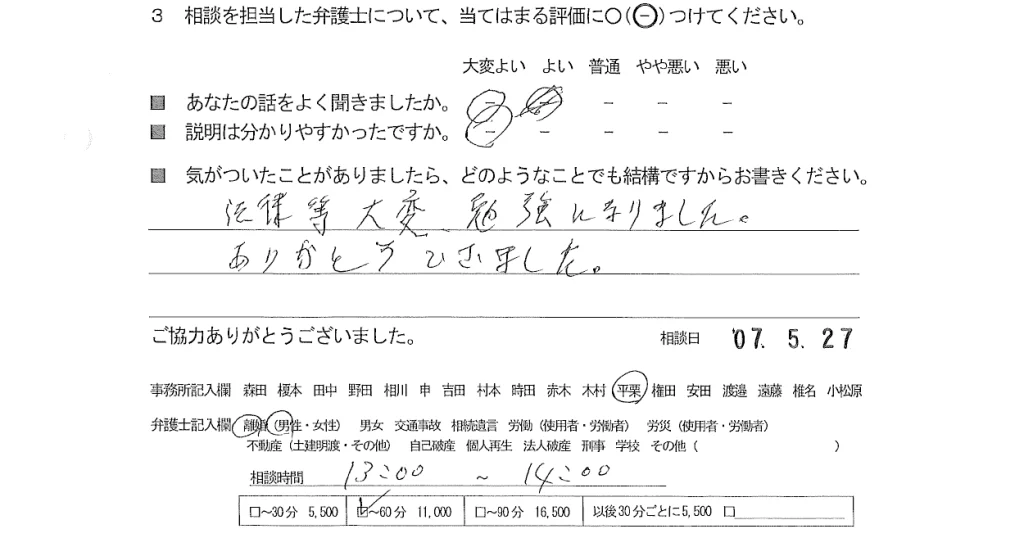 3 相談を担当した弁護士について、当てはまる評価に○(⊖)つけてください。
大変よい よい 普通 やや悪い 悪い
■ あなたの話をよく聞きましたか。 − − − − −
■ 説明は分かりやすかったですか。 − − − − −
■ 気がついたことがありましたら、どのようなことでも結構ですからお書きください。
法律等大変、勉強になりました。
ありがとうございました。
ご協力ありがとうございました。 相談日 '07. 5. 27
事務所記入欄 森田 榎本 田中 野田 相川 申 吉田 村本 時田 赤木 木村 平栗 権田 安田 渡邉 遠藤 椎名 小松原
弁護士記入欄 離婚 (男性・女性) 男女 交通事故 相続遺言 労働 (使用者・労働者) 労災 (使用者・労働者)
不動産 (土建明渡・その他) 自己破産 個人再生 法人破産 刑事 学校 その他 ( )
相談時間 13:00 ~ 14:00
□~30分 5,500 ☑~60分 11,000 □~90分 16,500 以後30分ごとに5,500 □